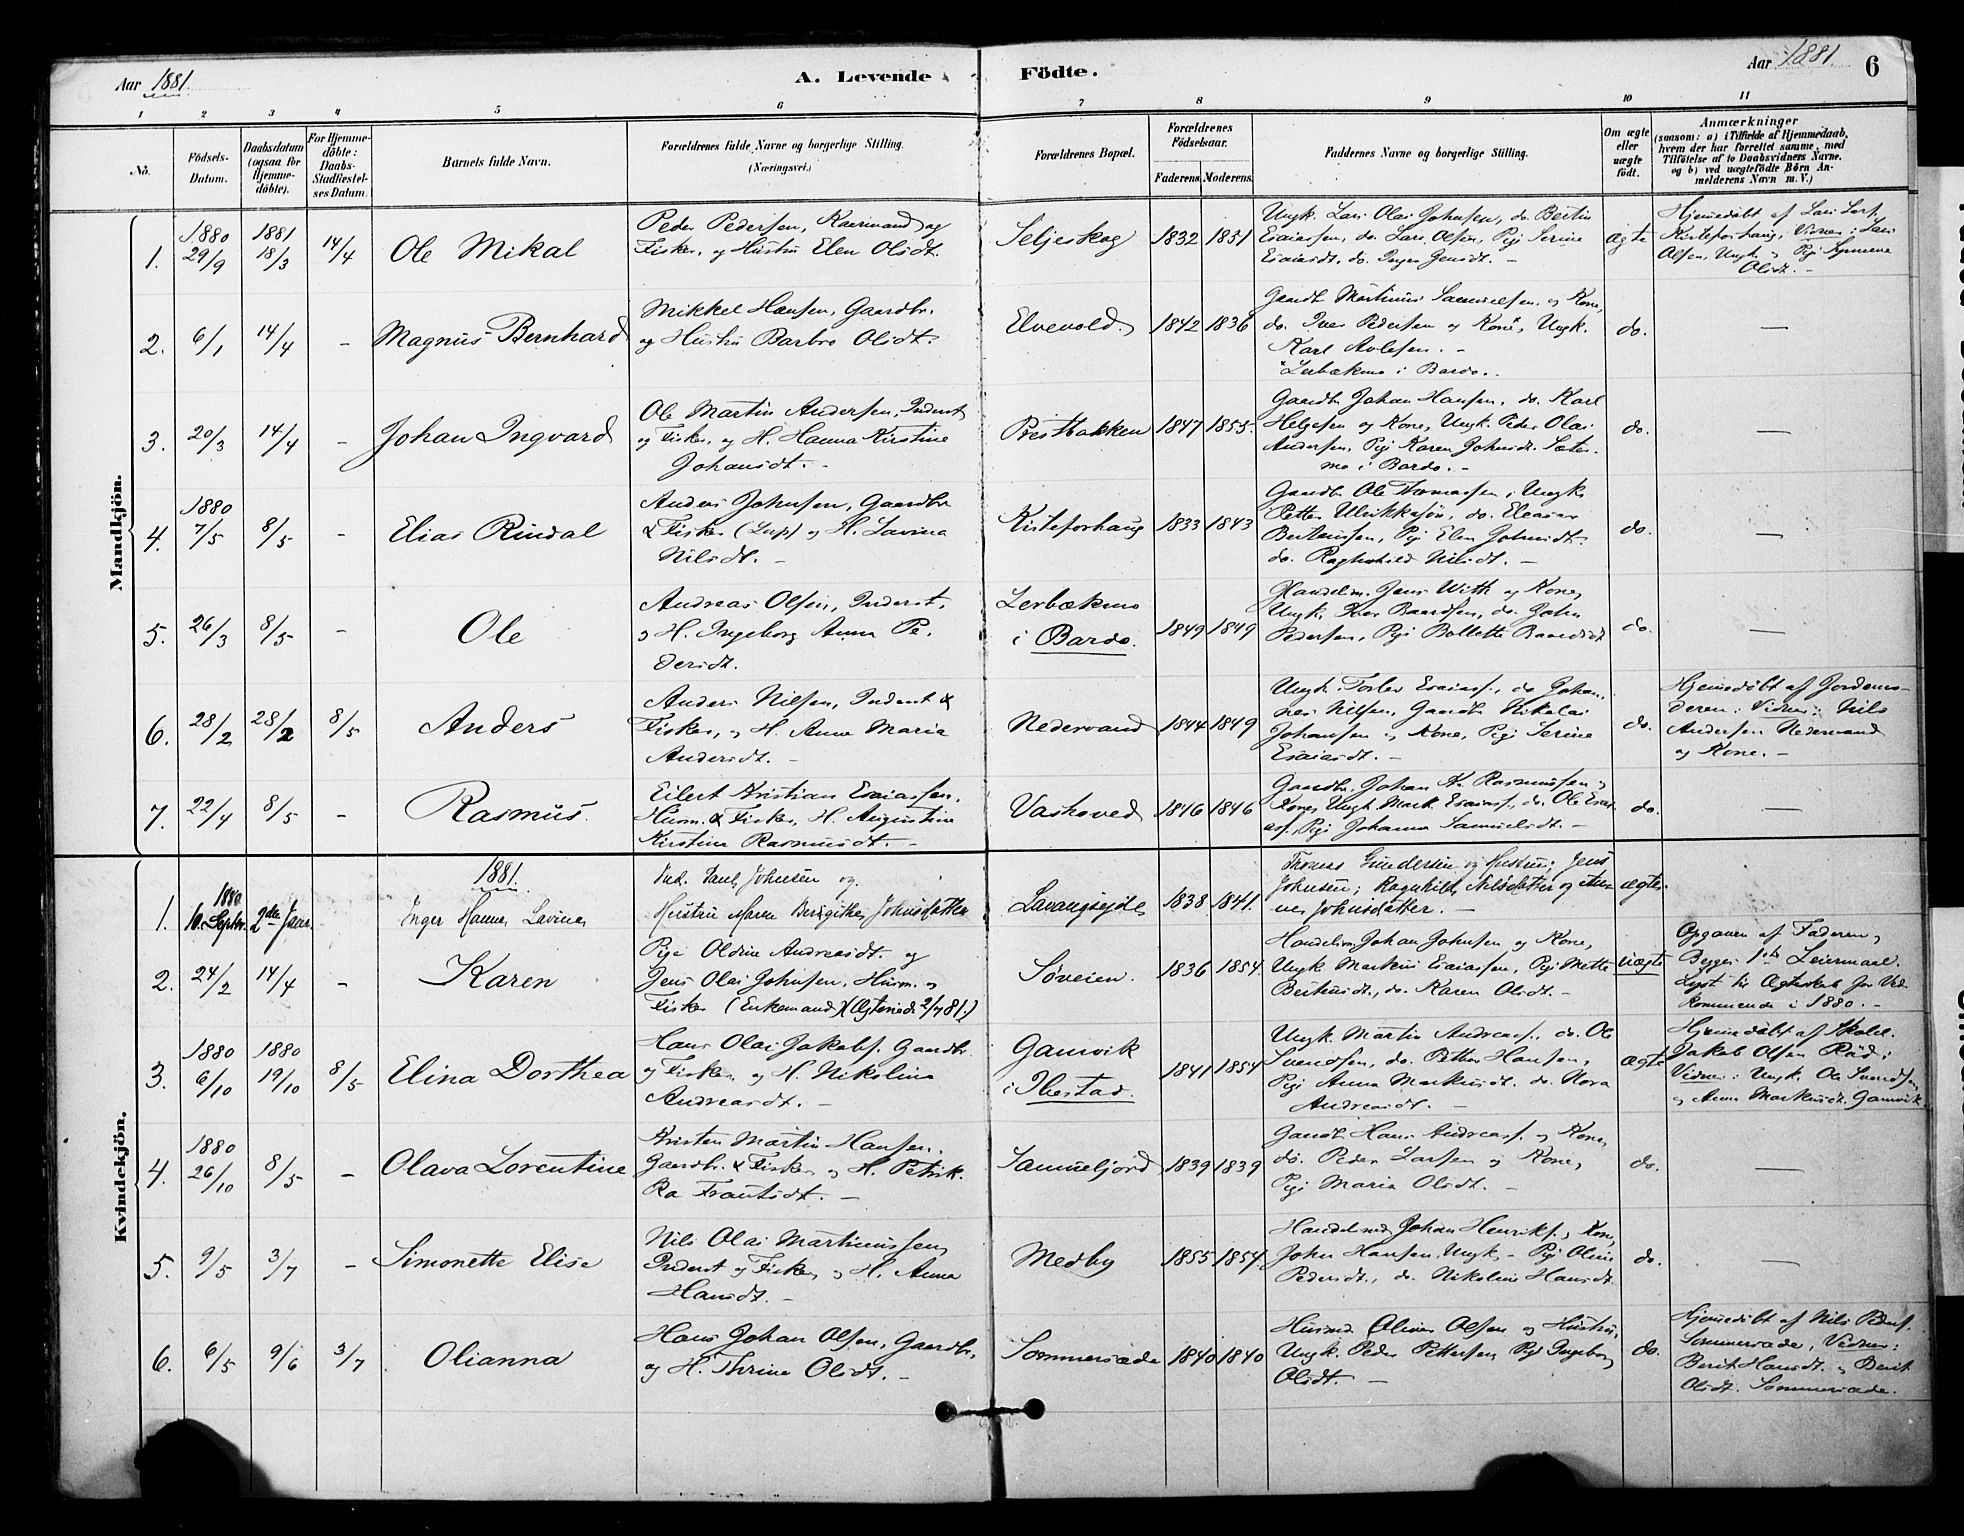 Aar 1881.
A. Levende Födte.
Aar 1881. 6
1 2 3 4 5 6 7 8 9 10 11
No.
Födsels-
Datum.
Daabsdatum
(ogsaa for
Hjemme-
döbte).
For Hjemme-
döbte:
Daabs-
Stadfæstel-
ses Datum.
Barnets fulde Navn.
Forældrenes fulde Navne og borgerlige Stilling.
(Næringsvei.)
Forældrenes Bopæl.
Forældrenes
Födselsaar.
Faderens. Moderens.
Faddernes Navne og borgerlige Stilling.
Om ægte
eller
uægte
födt.
Anmærkninger
(saasom: a) i Tilfælde af Hjemmedaab,
hvem der har forrettet samme, med
Tilföielse af to Daabsvidners Navne.
og b) ved uægtefödte Börn An-
melderens Navn m. V.)
Mandkjön.
1. 1880 29/9 1881 18/3 14/4 Ole Mikal
Peder Pedersen, Kaarmand og
Fisker, og Hustru Elen Olsdt.
Seljeskog 1832 1831
Ungk. Lars Olai Johnsen, do. Bertin
Esaiassen, do. Lars Olsen, Pige Serine
Esaiasdt. do. Inger Jensdt. –
ægte
Hjemedøbt af Lars Lars.
Kisteforhaug, Vidner: Lars
Olsen, Ungk. og Pige
Olsdt. –
2. 6/1 14/4 – Magnus Bernhard
Mikkel Hansen, Gaardbr.
og Hustru Barbro Olsdt.
Elvevold. 1842 1836
Gaardb. Martinus Samuelsen og Kone,
do. Iver Pedersen og Kone, Ungk.
Karl Avlesen. –
Lerbækmo i Bardo. –
do. –
3. 20/3 14/4 – Johan Ingvard
Ole Martin Andersen, Inderst
og Fisker, og H. Hanna Kirstine
Johansdt. –
Prestbakken 1847 1855.
Gaardb. Johan Hansen, do. Karl
Helgesen og Kone, Ungk. Peder Olai
Andersen, Pige Karen Johnsdt. Sæter-
mo i Bardo. –
do. –
4. 1880 7/5 8/5 – Elias Rindal
Anders Johnsen, Gaardbr.
& Fisker (Lap) og H. Lavina
Nilsdt. –
Kisteforhaug 1833 1843
Gaardb. Ole Thomassen, Ungk.
Petter Ulrikksøn, do. Eleasar
Berteussen, Pige Elen Johnsdt.
do. Raghnhild Nilsdt. –
do. –
5. 26/3 8/5 – Ole
Andreas Olsen, Inderst,
og H. Ingeborg Anna Pe-
dersdt.
Lerbækmo
i Bardo. 1849 1849
Handelsm. Jens With og Kone,
Ungk. Iver Baardsen, do. John
Pedersen, Pige Bollette Baardsdt
do. –
6. 28/2 28/2 8/5 Anders
Anders Nilsen, Inderst &
Fisker, og H. Anne Maria
Andersdt. –
Nedervand 1844 1849
Ungk. Torlev Esaiass., do. Johan-
nes Nilsen, Gaardb. Nikolai
Johansen og Kone, Pige Serine
Esaiasdt. –
do.
Hjemedøbt af Jordemo-
deren; Vidner: Nils
Andersen Nedervand
og Kone. –
7. 22/4 8/5 – Rasmus.
Eilert Kristian Esaiassen,
Husm. & Fisker, H. Augustine
Kirstina Rasmusdt. –
Vashoved 1846 1846
Gaardb. Johan A. Rasmussen og
Kone, Ungk. Mark. Esaiass, do. Ole Esai-
ass., Pige Johanna Samuelsdt. –
do. –
Kvindekjön.
1881.
1. 1880 10. Septbr. 2den Januar. Inger Hanna Lavina
Ind. Paul Johnsen og
Hustru Maren Bergithe Johnsdatter
1838 1841.
Thomas Gundersen og Hustru; Jens
Johnsen; Ragnhild Nilsdatter og Han-
na Johnsdatter. –
ægte.
2. 24/2 14/4 – Karen
Pige Oldine Andreasdt. og
Jens Olai Johnsen, Husm. og
Fisker (Enkemand) (Ægteviede 2/7 81.)
Søveien. 1836 1854.
Handelsm. Johan Johnsen og Kone,
Ungk Markus Esaiassen, Pige Mette
Berteusdt., do. Karen Olsdt. –
uægte
Opgaven af Faderen,
Begges 1ste Leiermaal.
Lyst til Ægteskab for Ved-
kommende i 1880. –
3. 1880 6/10 1880 19/10 8/5 Elina Dorthea
Hans Olai Jakobs. Gaardbr.
og Fisker og H. Nikolina
Andreasdt. –
Gamvik
i Ibestad. 1841 1854
Ungk. Martin Andreass., do. Ole
Svendsen, do. Petter Hansen,
Pige Anna Markusdt. do. Nora
Andreasdt. –
ægte
Hjemedøbt af Skolel.
Jakob Olsen Rød;
Vidner: Ungk. Ole Svendsen
og Anna Markusdt. Gamvik.
4. 1880 26/10 8/5 – Olava Lorentine
Kristen Martin Hansen,
Gaardbr. & Fisker og H. Petrik-
ka Frantsdt. –
1839 1839
Gaardb. Hans Andreass. og Kone,
do. Peder Larsen og Kone,
Pige Maria Olsdt. –
do. –
5. 9/5 3/7 – Simonette Elise
Nils Olai Martinussen,
Inderst og Fisker og H. Anna
Hansdt. –
Medby 1855 1854.
Handelsmd. Johan Henriks. og Kone,
John Hansen, Ungk. – Pige Olina
Pedersdt., do. Nikoline Hansdt.
do. –
6. 6/5 9/6 3/7 Olianna
Hans Johan Olsen, Gaardbr.
og H. Thrine Olsdt. –
Sommersæde 1840 1840
Husmd Oliver Olsen og Hustru,
Ungk. Peder Pettersen, Pige Ingeborg
Olsdt. –
do.
Hjemedøbt af Nils Peders.
Sommersæde, Vidner:
Berit Hansdt. og Berit
Olsdt. Sommersæde.